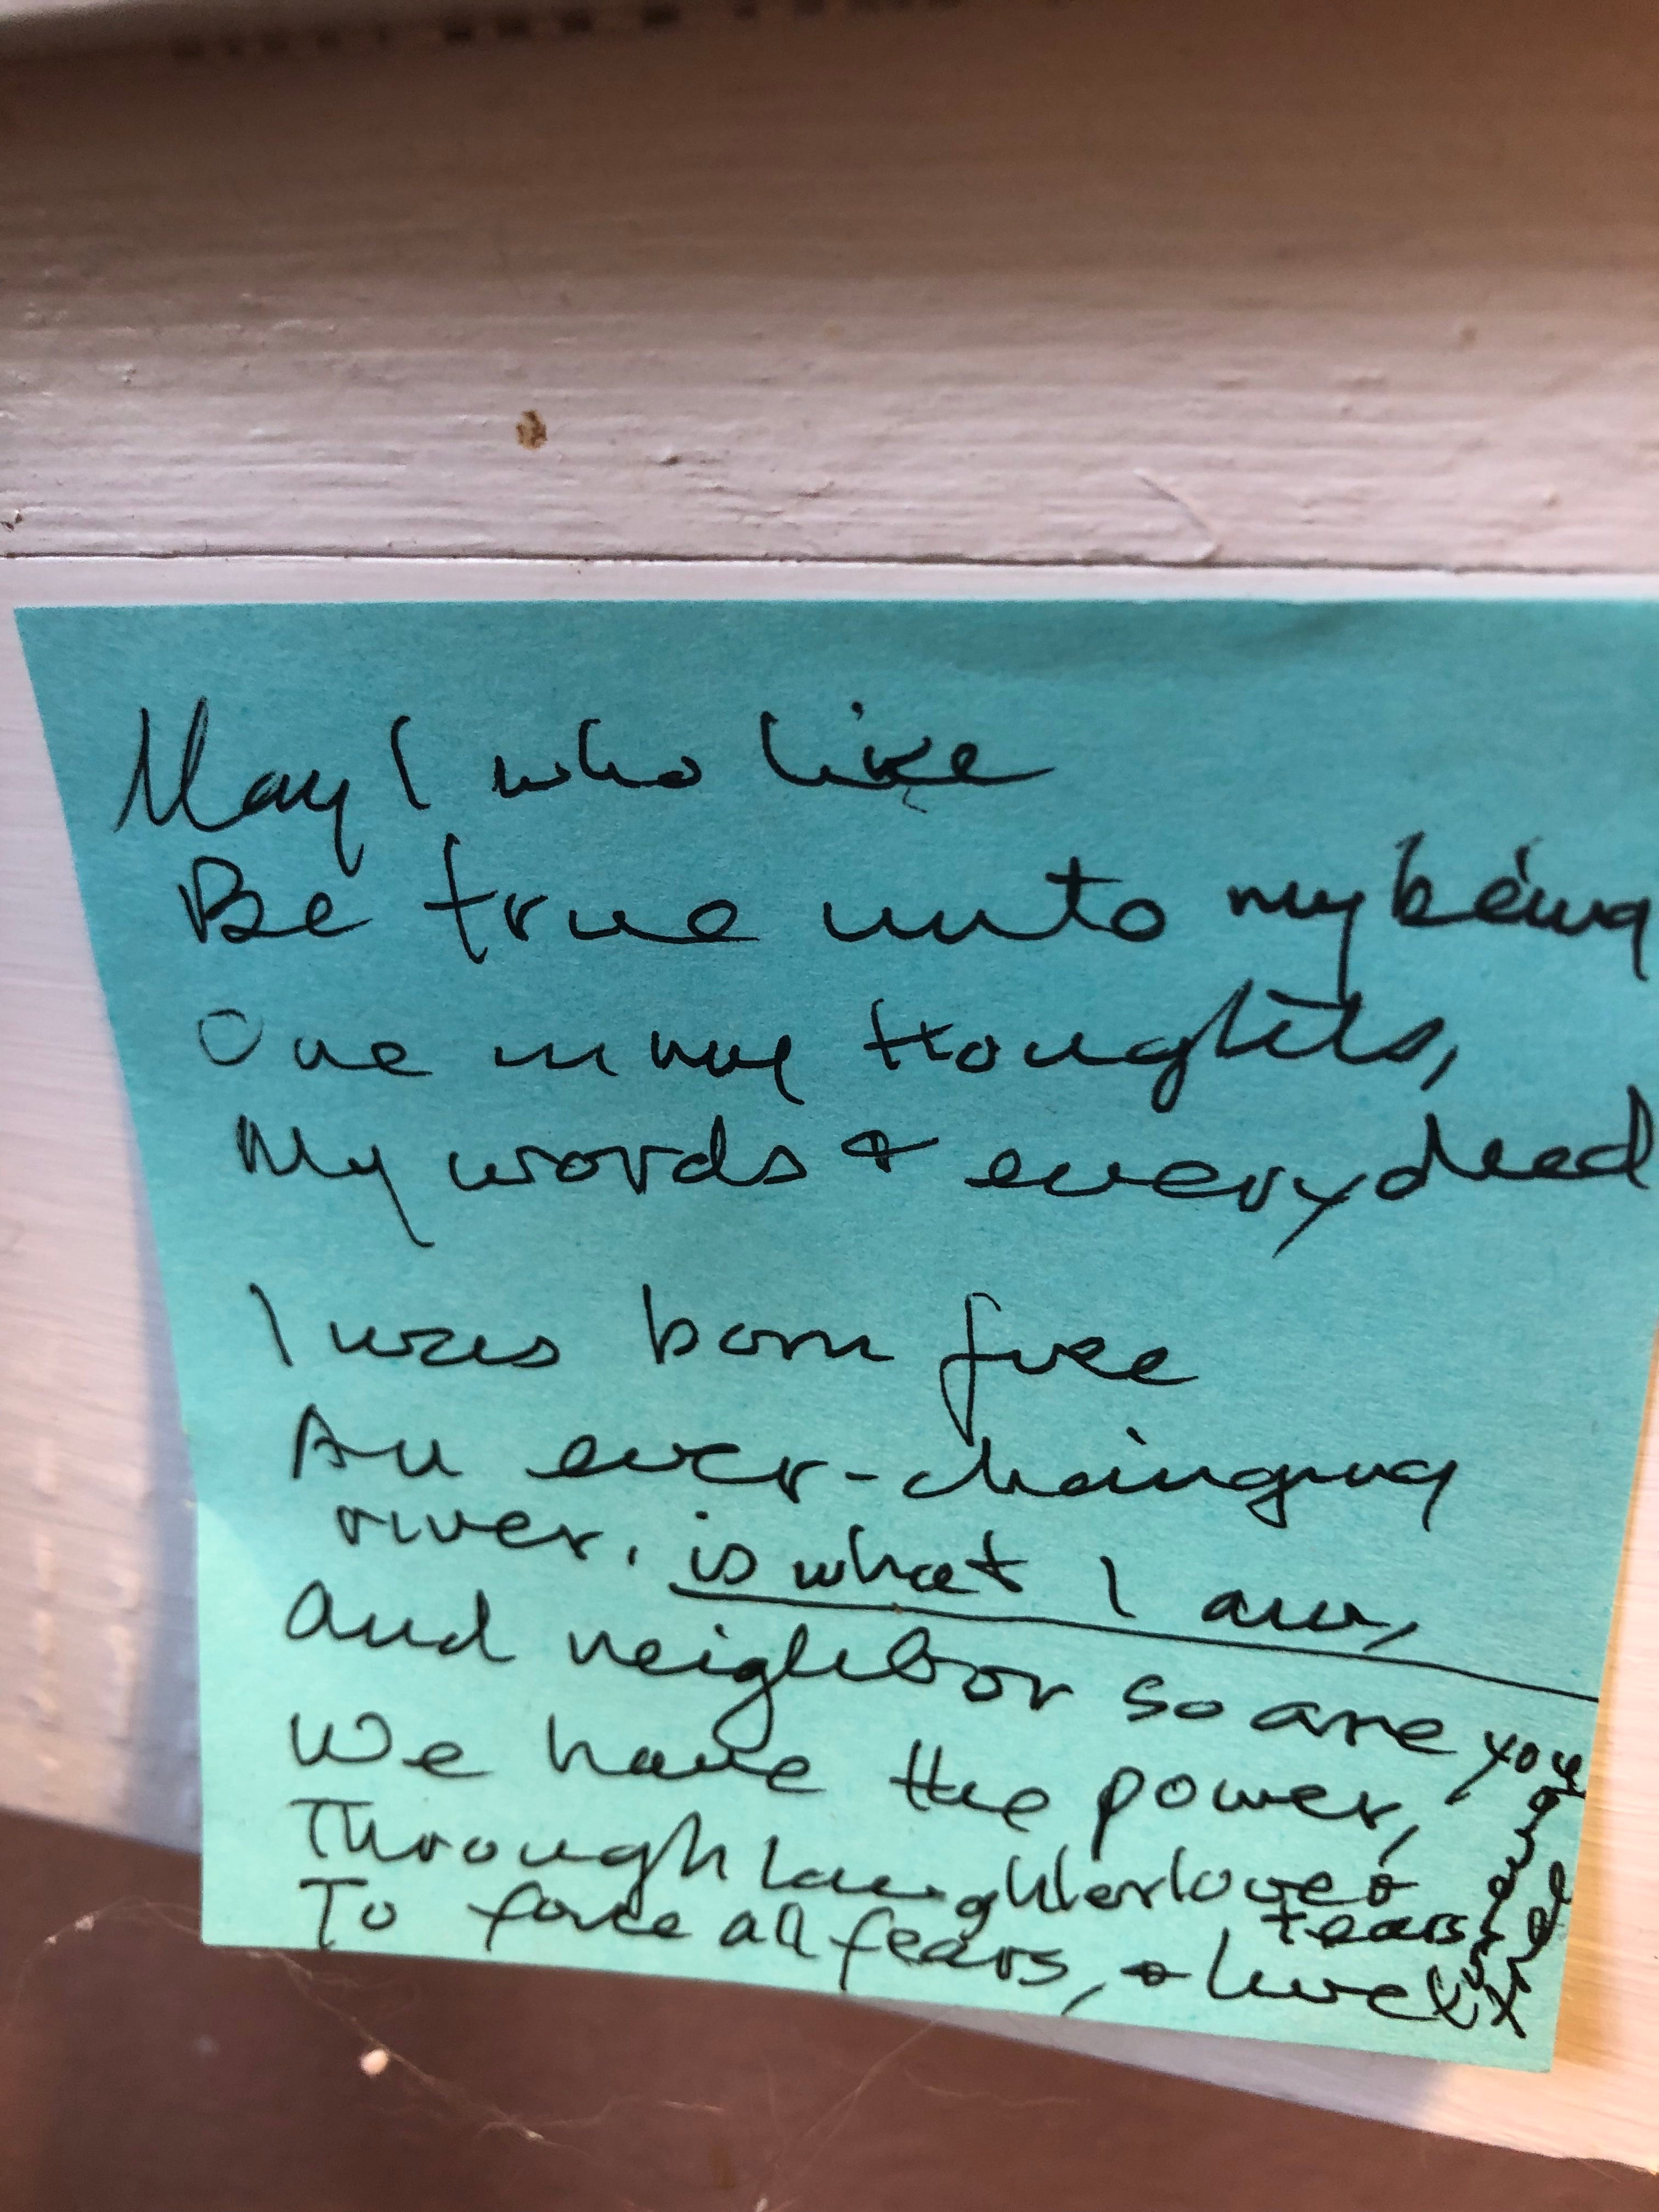 May I who live
Be true unto my being
One in my thoughts,
My words & every deed
I was born free
An ever-changing
river, is what I am,
And neighbor so are you
We have the power,
Through laughter love &
tears
To face all fears, & live